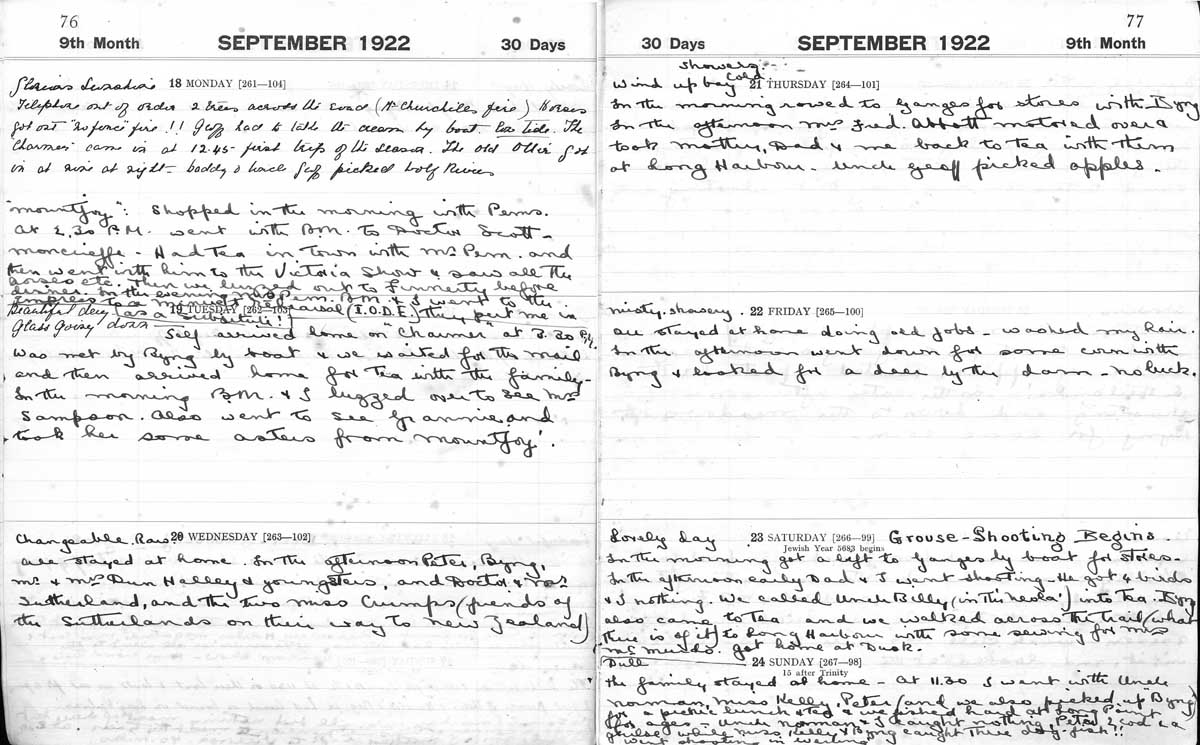 76
9th Month SEPTEMBER 1922 30 Days
18 MONDAY [261—104]
Telephone out of order 2 trees across the road (Mr Churchills fire) Horses
got out "no fence" fire!! Geoff had to take the cream by boat - Low Tide. The
"Charmer" came in at 12.45 - first trip of the season. The old Otter got
in at nine at night - Daddy & Uncle Geoff picked Wolf Rivers
"Mountjoy": Shopped in the morning with Pems.
At 2.30 P.M. went with B.M. to Doctor Scott-
moncrieffe - Had Tea in Town with Mrs Pem. and
then went with him to the Victoria Show & saw all the
horses etc. Then we buzzed out to Finnerty before
dinner. In the evening Mrs Pem. B.M. & I went to the
Empress to a rehearsal (I.O.D.E.) They put me in
Beautiful day (as a substitute!!) 19 TUESDAY [262—103]
Glass Going down
Self arrived home on "Charmer" at 3.30 P.M.
was met by Byng by boat & we waited for the mail
and then arrived home for Tea with the family -
In the morning B.M. & I buzzed over to see Mrs
Sampson. Also went to see Grannie and
took her some asters from "Mountjoy".
Changeable. Raw 20 WEDNESDAY [263—102]
All stayed at home. In the afternoon Peter, Byng,
Mr & Mrs & youngsters, and Doctor & Mrs
Sutherland, and the two Miss Crumps (friends of
the Sutherlands on their way to New Zealand)
77
30 Days SEPTEMBER 1922 9th Month
showery
Wind up bay cold 21 THURSDAY [264—101]
In the morning rowed to Ganges for stores with Byng
In the afternoon Mrs Fred. Abbott motored over &
took mother, Dad & me back to Tea with them
at Long Harbour. Uncle Geoff picked apples.
misty, showery. 22 FRIDAY [265—100]
All stayed at home doing odd jobs - washed my hair.
In the afternoon went down for some corn with
Byng & looked for a deer by the dam - no luck.
Lovely day 23 SATURDAY [266—99] Grouse-Shooting Begins.
Jewish Year 5683 begins
In the morning got a left to Ganges by boat for stores.
In the afternoon early Dad & I went shooting - He got 4 birds
& I nothing. We called Uncle Billy (in the) into Tea. Byng
also came to Tea and we walked across the Trail (what
there is of it) to Long Harbour with some sewing for Mrs
got home at Dusk.
Dull 24 SUNDAY [267—98]
15 after Trinity
The family stayed at home - At 11.30 I went with Uncle
Norman, Miss Kelly, Peter (and we also picked up Byng)
for a picnic lunch & Tea & we fished hard at Long Point
for ages - Uncle Norman & I caught nothing, Peter 2 cod & a
grilse while Miss Kelly & Byng caught three dog-fish!!
went shooting in evening